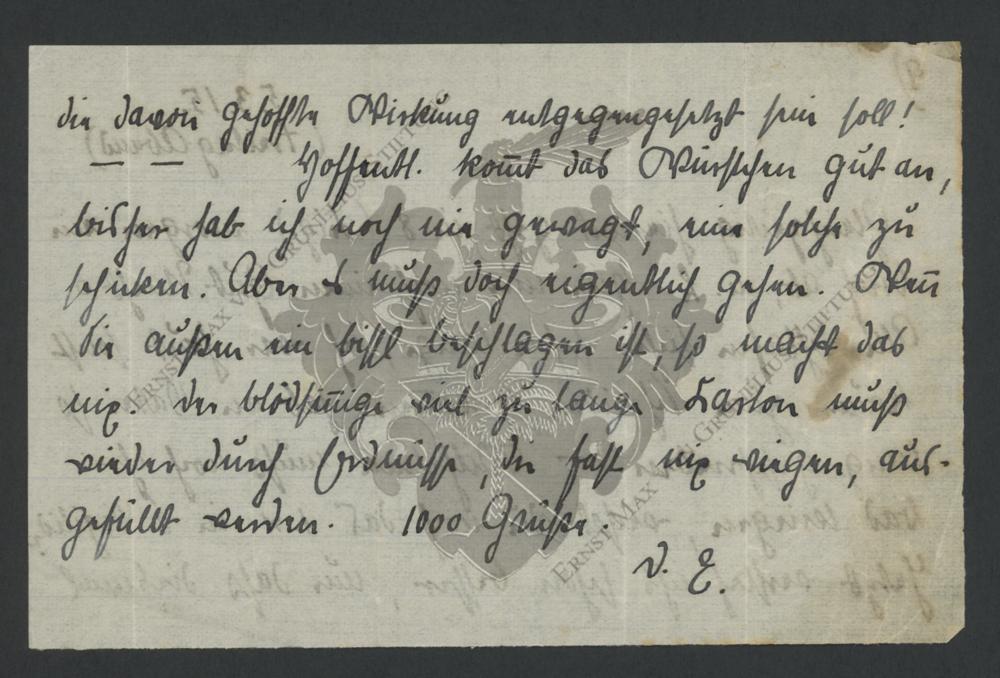 die davon gehoffte Wirkung entgegengesetzt sein soll!
Hoffentl. kom̅t das Würstchen gut an,
bisher hab ich noch nie gewagt, eine solche zu
schicken. Aber es muß doch eigentlich gehen. Wen̅
sie außen ein bissl beschlagen ist, so macht das
nix. Der blödsin̅ige viel zu lange Karton muß
wieder durch Erdnüsse, die fast nix wiegen, aus-
gefüllt werden. 1000 Grüße.
D. E.
ERNST MAX VON GRUNELIUS INSTITUT
ERNST MAX VON GRUNELIUS INSTITUT